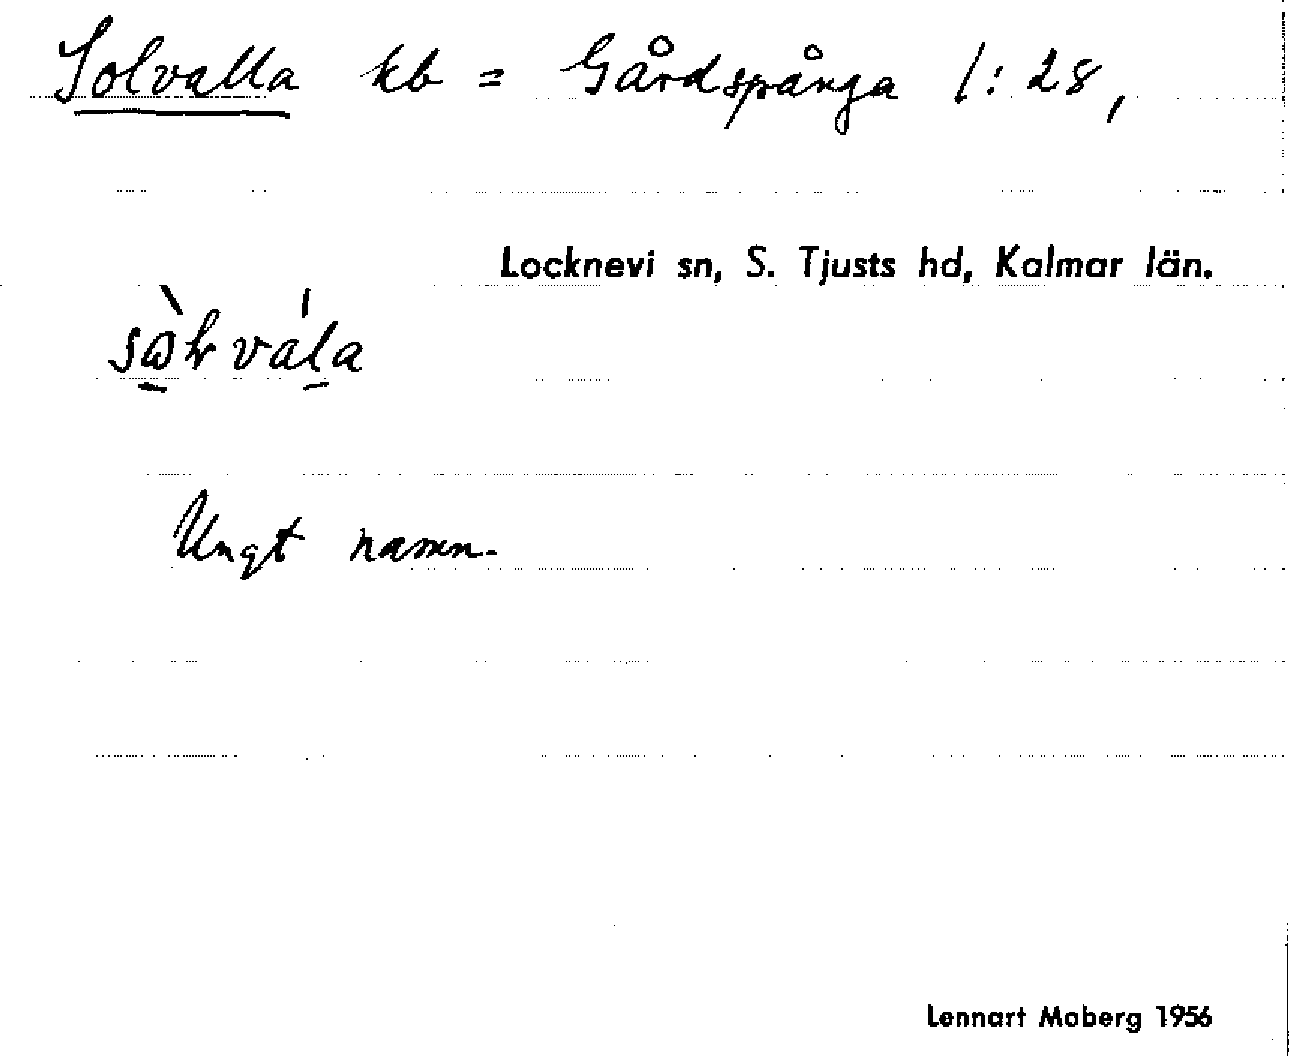 Solvalla kb = Gårdspånga 1:28,
Locknevi sn, S. Tjusts hd, Kalmar län.
Ungt namn.
Lennart Moberg 1956